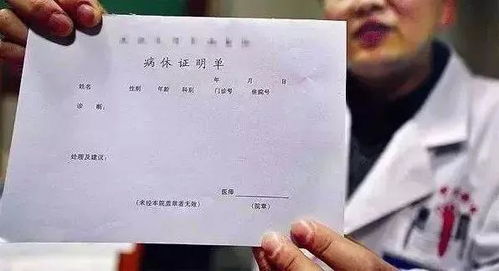 病休证明单
年 月 日
姓名 性别 年龄 科别 门诊号 住院号
诊断：
处理及建议：
医师
(未经本院盖章者无效) (院章)